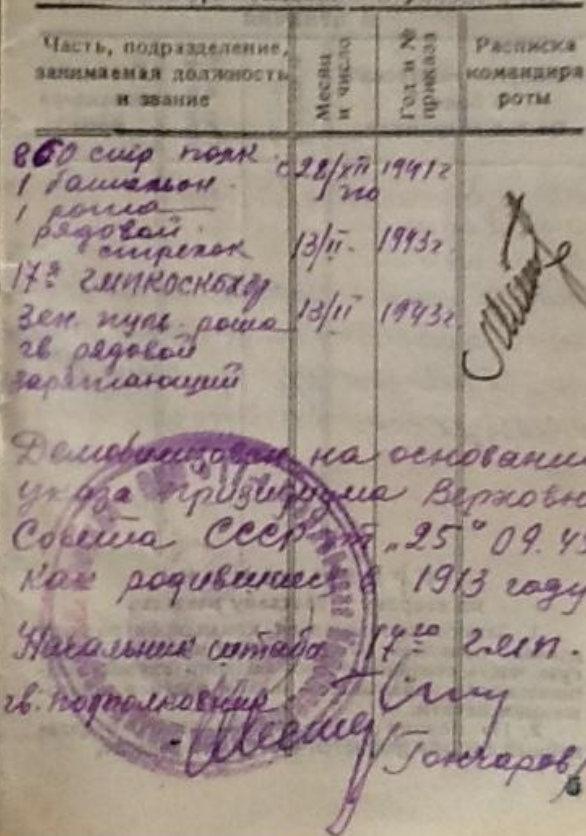 Часть, подразделение, занимаемая должность и звание
Месяц и число
Год и № приказа
Расписка командира роты
860 стр полк. с 28/XII 1941г
1 батальон. по
1 рота
рядовой
стрелок 13/II- 1943г.
17й
Зен. пул. рота 13/II 1943г.
гв. рядовой
заряжающий
Демобилизован на основани
указа Призидиума Верховн
Совета СССР от „25“ 09.45
как родившийся в 1913 году
Начальник штаба 17го гмп.
гв. подполковник
/Гончаров/
5